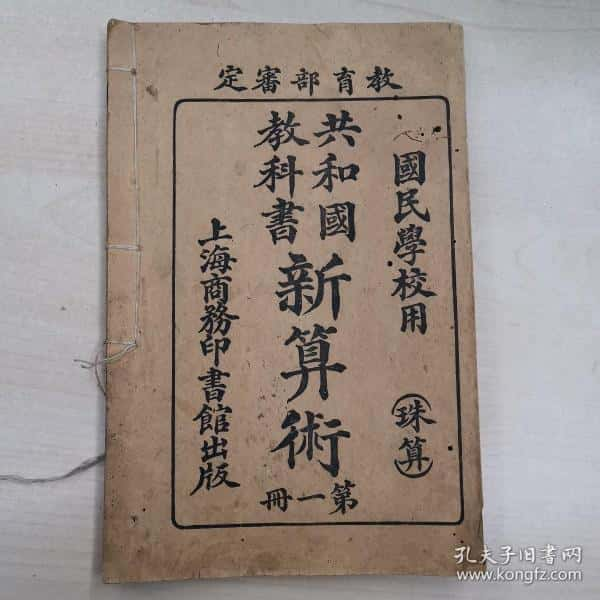 教育部審定
國民學校用
(珠算)
共和國
教科書
新算術
第一冊
上海商務印書館出版
孔夫子旧书网
www.kongfz.com